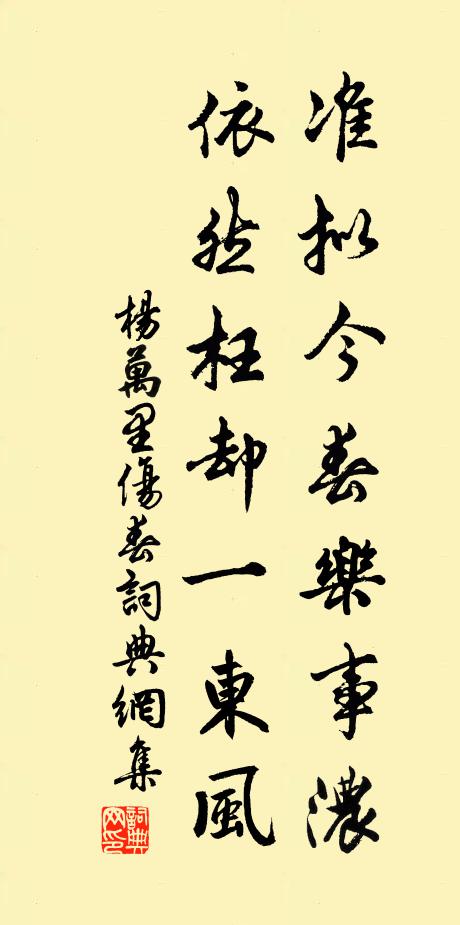 准拟今春樂事濃
依然枉却一東風
楊萬里傷春詞典網集
詞典网印